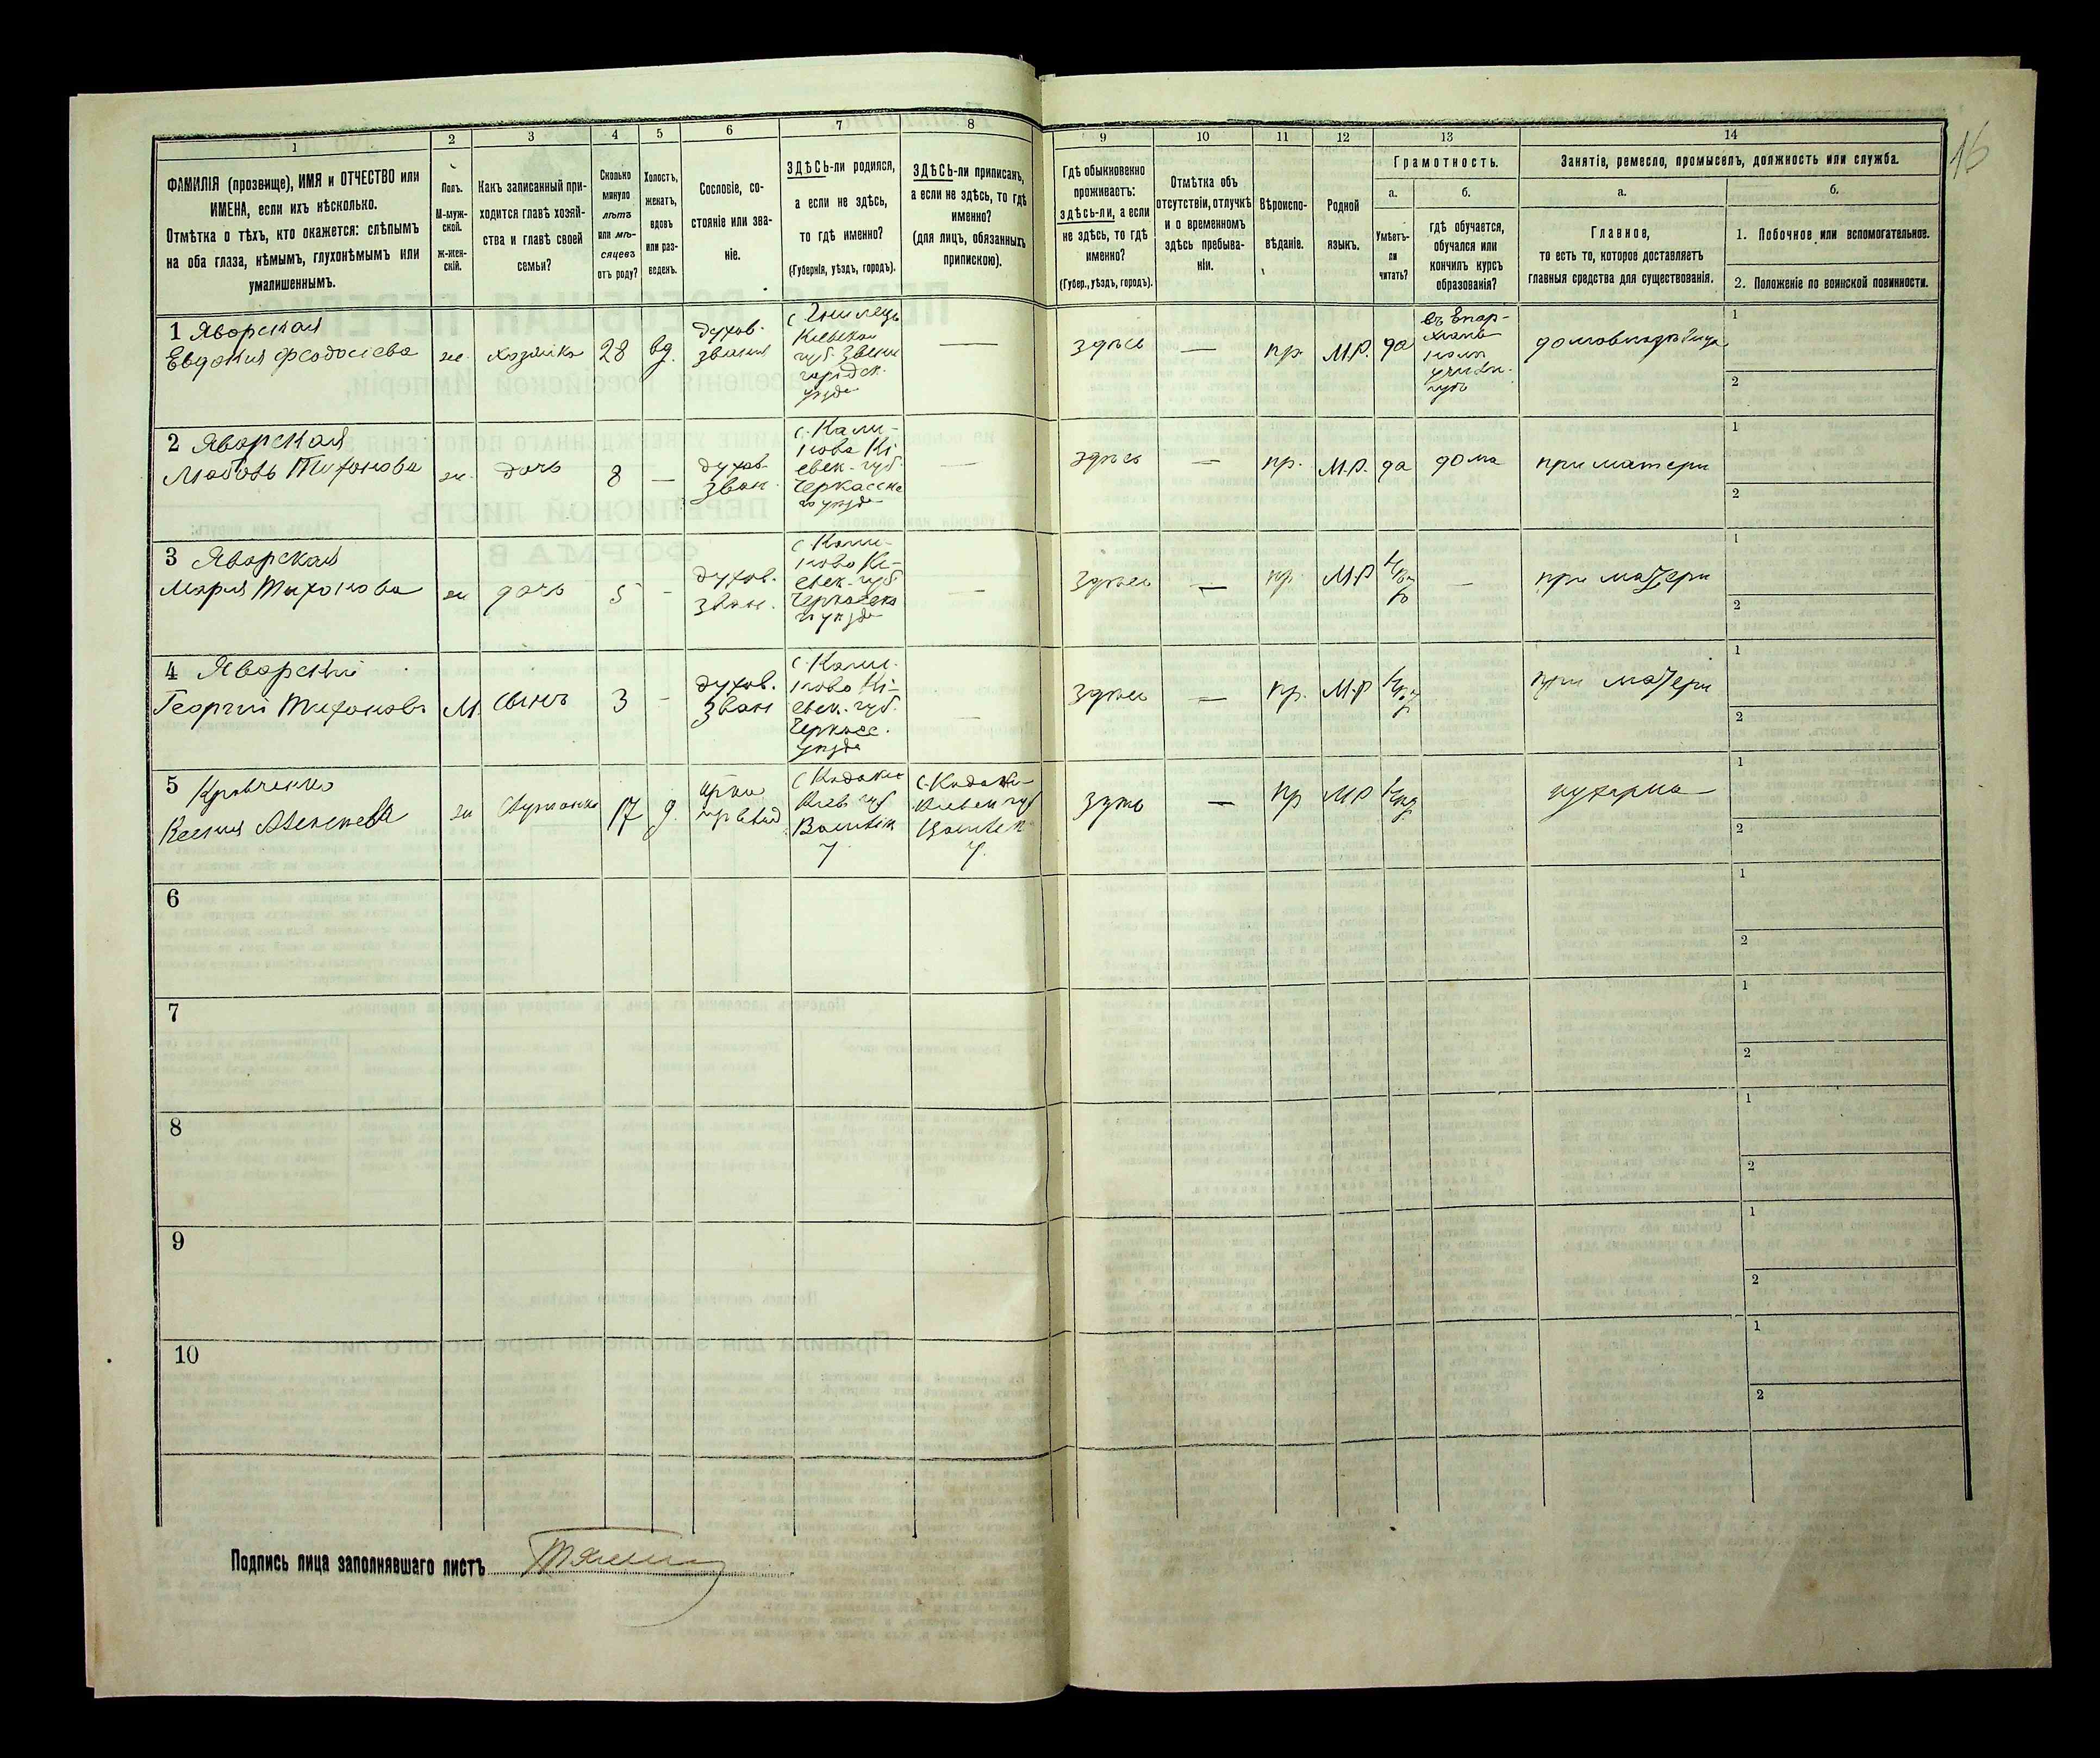 16
1
2
3
4
5
6
7
8
9
10
11
12
13
14
ФАМИЛІЯ (прозвище), ИМЯ и ОТЧЕСТВО или
ИМЕНА, если ихъ нѣсколько.
Отмѣтка о тѣхъ, кто окажется: слѣпымъ
на оба глаза, нѣмымъ, глухонѣмымъ или
умалишеннымъ.
Полъ.
М-муж-
ской.
Ж-жен-
скій.
Какъ записанный при-
ходится главѣ хозяй-
ства и главѣ своей
семьи?
Сколько
минуло
лѣтъ
или мѣ-
сяцевъ
отъ роду?
Холостъ,
женатъ,
вдовъ
или раз-
веденъ.
Сословіе, со-
стояніе или зва-
ніе.
ЗДѢСЬ-ли родился,
а если не здѣсь,
то гдѣ именно?
(Губернія, уѣздъ, городъ).
ЗДѢСЬ-ли приписанъ,
а если не здѣсь, то гдѣ
именно?
(для лицъ, обязанныхъ
припискою).
Гдѣ обыкновенно
проживаетъ:
здѣсь-ли, а если
не здѣсь, то гдѣ
именно?
(Губер., уѣздъ, городъ).
Отмѣтка объ
отсутствіи, отлучкѣ
и о временномъ
здѣсь пребыва-
ніи.
Вѣроиспо-
вѣданіе.
Родной
языкъ.
Грамотность.
а.
Умѣетъ-
ли
читать?
б.
гдѣ обучается,
обучался или
кончилъ курсъ
образованія?
Занятіе, ремесло, промыселъ, должность или служба.
а.
Главное,
то есть то, которое доставляетъ
главныя средства для существованія.
б.
1. Побочное или вспомогательное.
2. Положеніе по воинской повинности.
1 Яворская
Евдокия Феодосіева
ж.
хозяйка
28
вд.
духов.
званія
Кіевской
губ. Звени
городск.
уѣзда
—
здѣсь
—
пр.
М.Р.
да
въ Епар-
училищ
1
2
2 Яворская
Любовь Тихонова
ж.
дочь
8
—
духов.
зван.
Кі
евск. губ.
Черкасска
го уѣзда
—
здѣсь
—
пр.
М.Р.
да
дома
при матери
1
2
3 Яворская
Мария Тихонова
ж
дочь
5
-
духов.
зван.
Кі-
евск. губ
Черкасска
го уѣзда
—
здѣсь
—
пр.
М.Р
—
при матери
1
2
4 Яворскій
Георгій Тихоновъ
М.
сынъ
3
-
духов.
зван
Кі-
евск. губ.
Черкасс.
уѣзда
—
здѣсь
—
пр.
М.Р
при матери
1
2
5 Кравченко
Ксенія Алексѣева
ж
17
д.
Кіев губ
у
у.
—
пр
М.Р
кухарка
1
2
6
1
2
7
1
2
8
1
2
9
1
2
10
1
2
Подпись лица заполнявшаго листъ